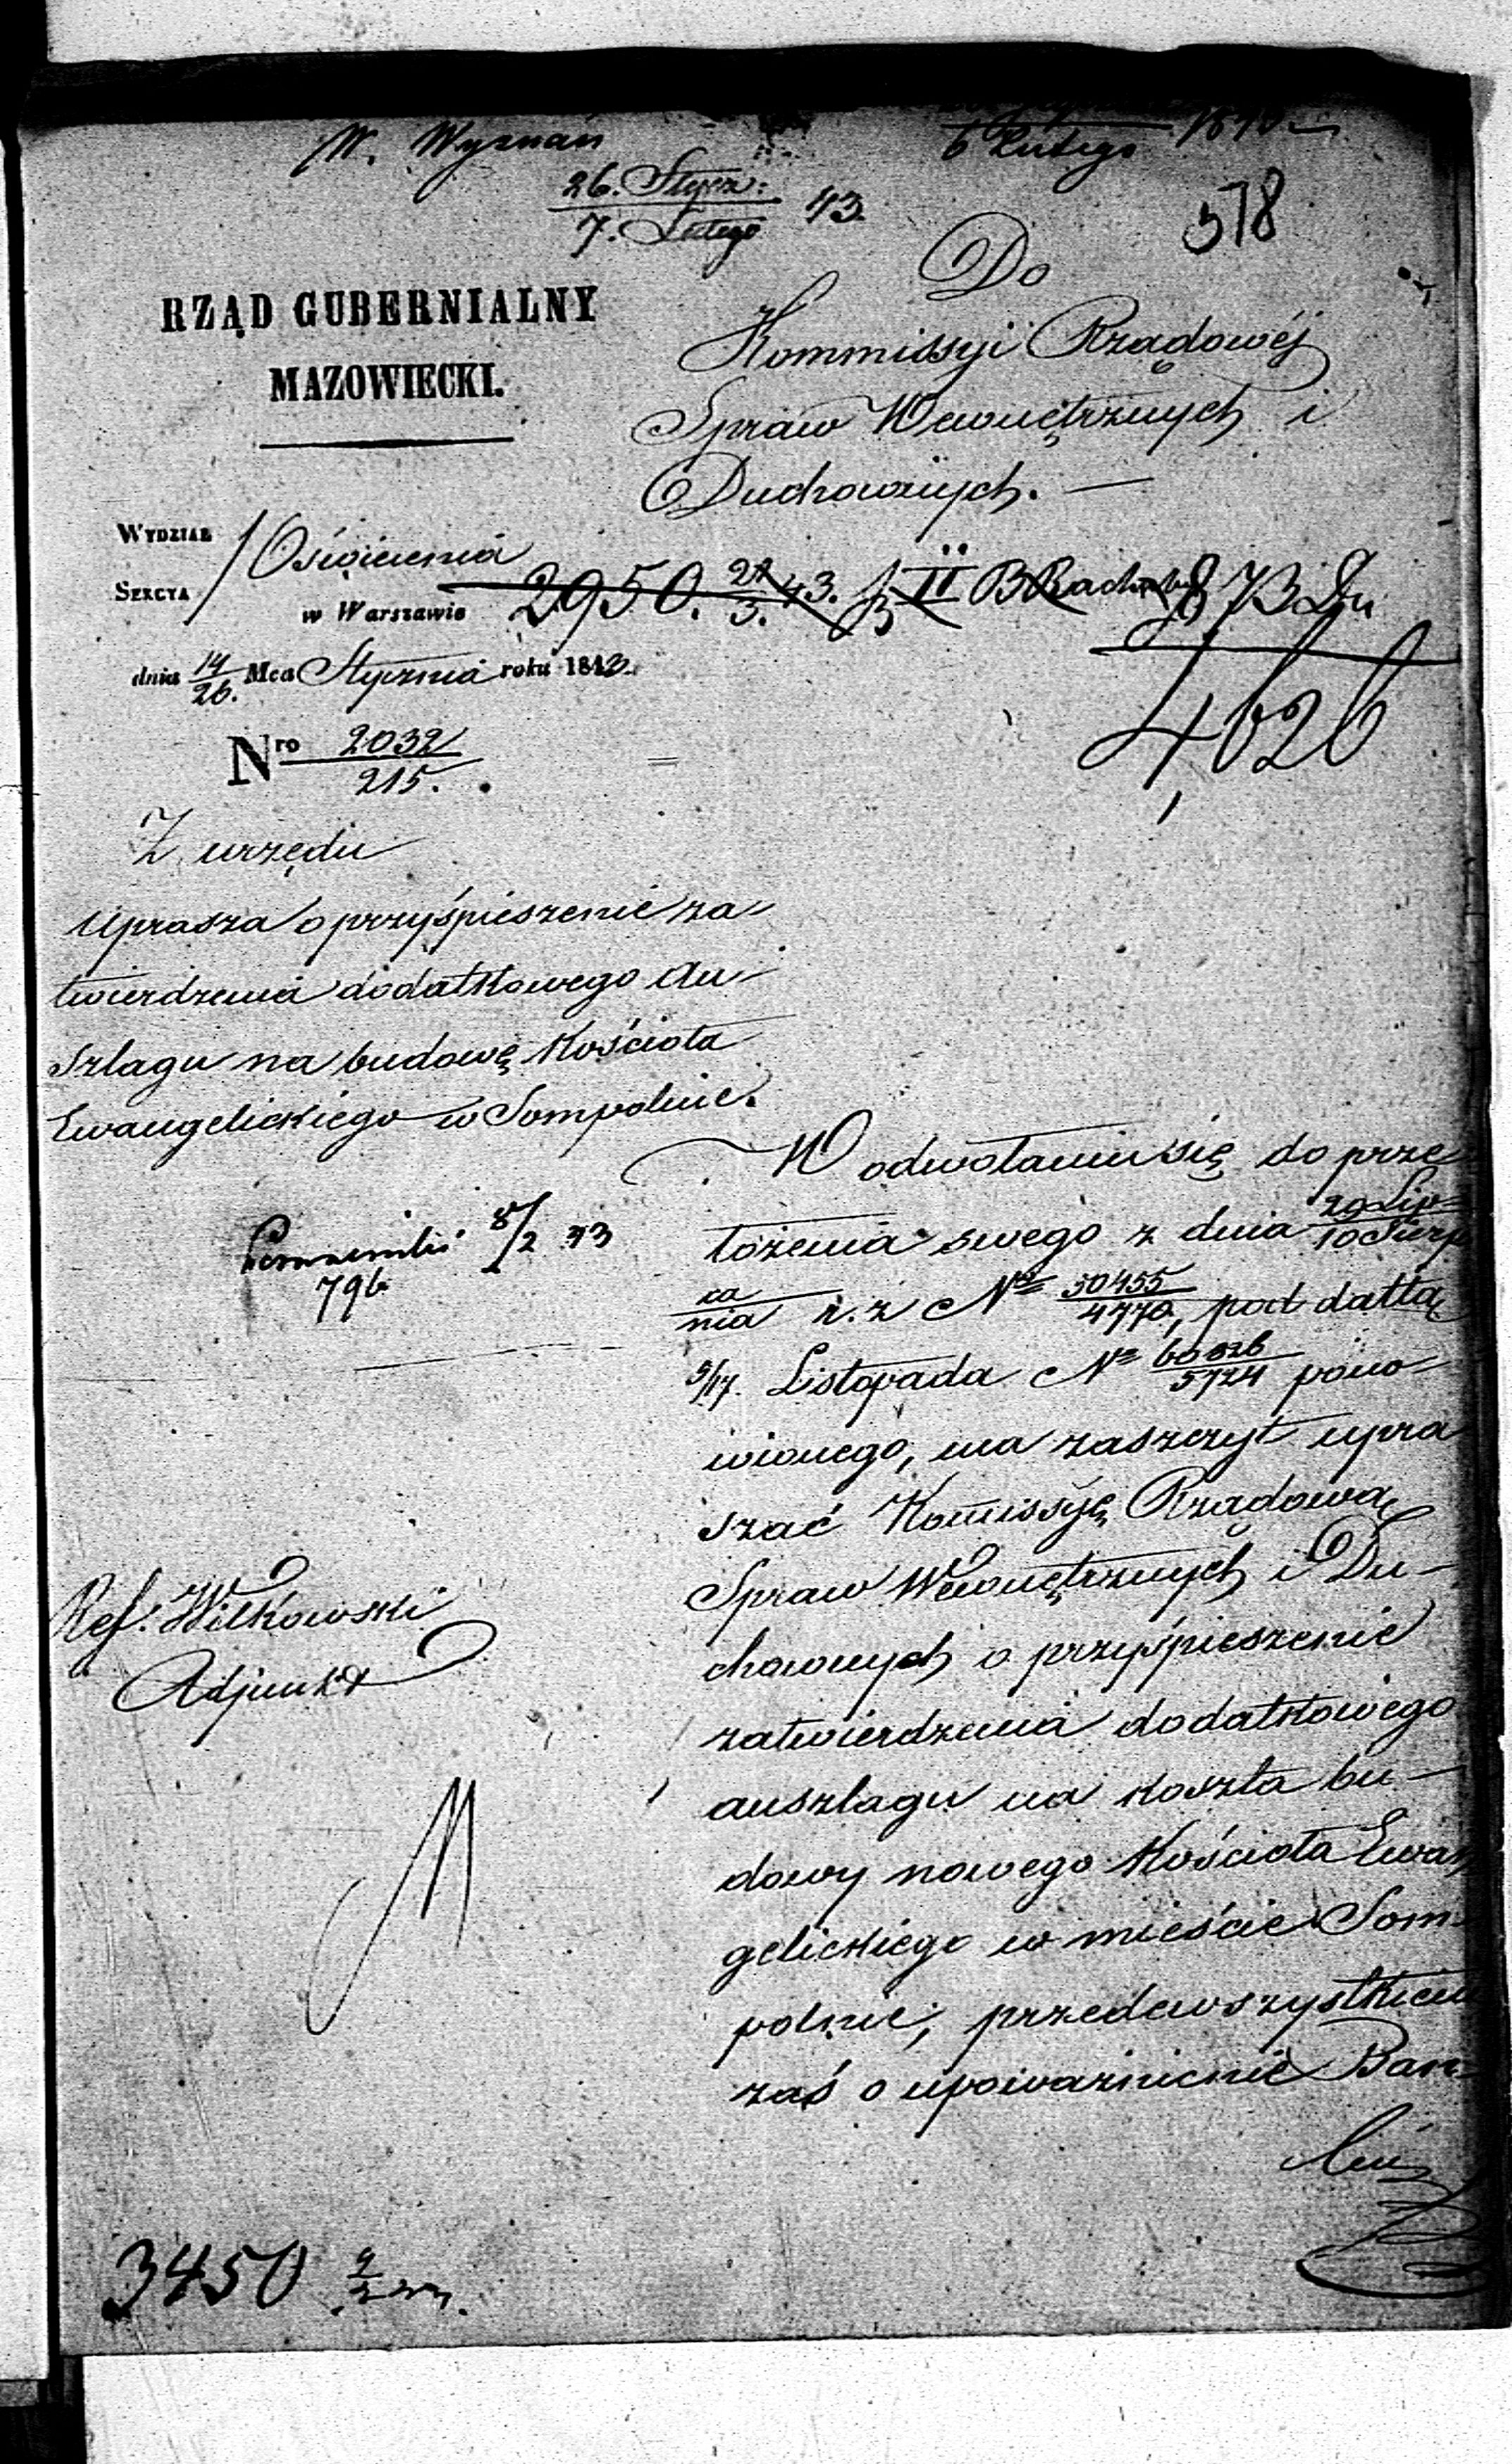 W. Wyznań
6 Lutego
26. Stycz:
7. Lutego 43
578
RZĄD GUBERNIALNY
MAZOWIECKI.
Do
Kommissyi Rządowéj
Spraw Wewnętrznych i
Duchownych. —
WYDZIAŁ
SEKCYA
Oświecenia
w Warszawie
2950. 43. II
4626
dnia 14/26. Mca Stycznia roku 1843.
Nro 2032/215.
Z urzędu
Uprasza o przyśpieszenie za-
twierdzenia dodatkowego au-
szlagu na budowę Kościoła
Ewangelickiego w Sompolnie.
W odwołaniu się do prze-
łożenia swego z dnia 29 Lip-/10 Sierp-
ca/nia r. z Nº 50455/4770, pod dattą
5/17. Listopada Nº 60826/5724 pono-
wionego, ma zaszczyt upra
szać Komissyę Rządową
Spraw Wewnętrznych i Du-
chownych o przyśpieszenie
zatwierdzenia dodatkowego
auszlagu na koszta bu-
dowy nowego Kościoła Ewan
gelickiego w mieście Som-
polnie, przedewszystkiem
zaś o upoważnienie Ban-
8/2 43
796
Ref. Wilkowski
Adjunkt
3450